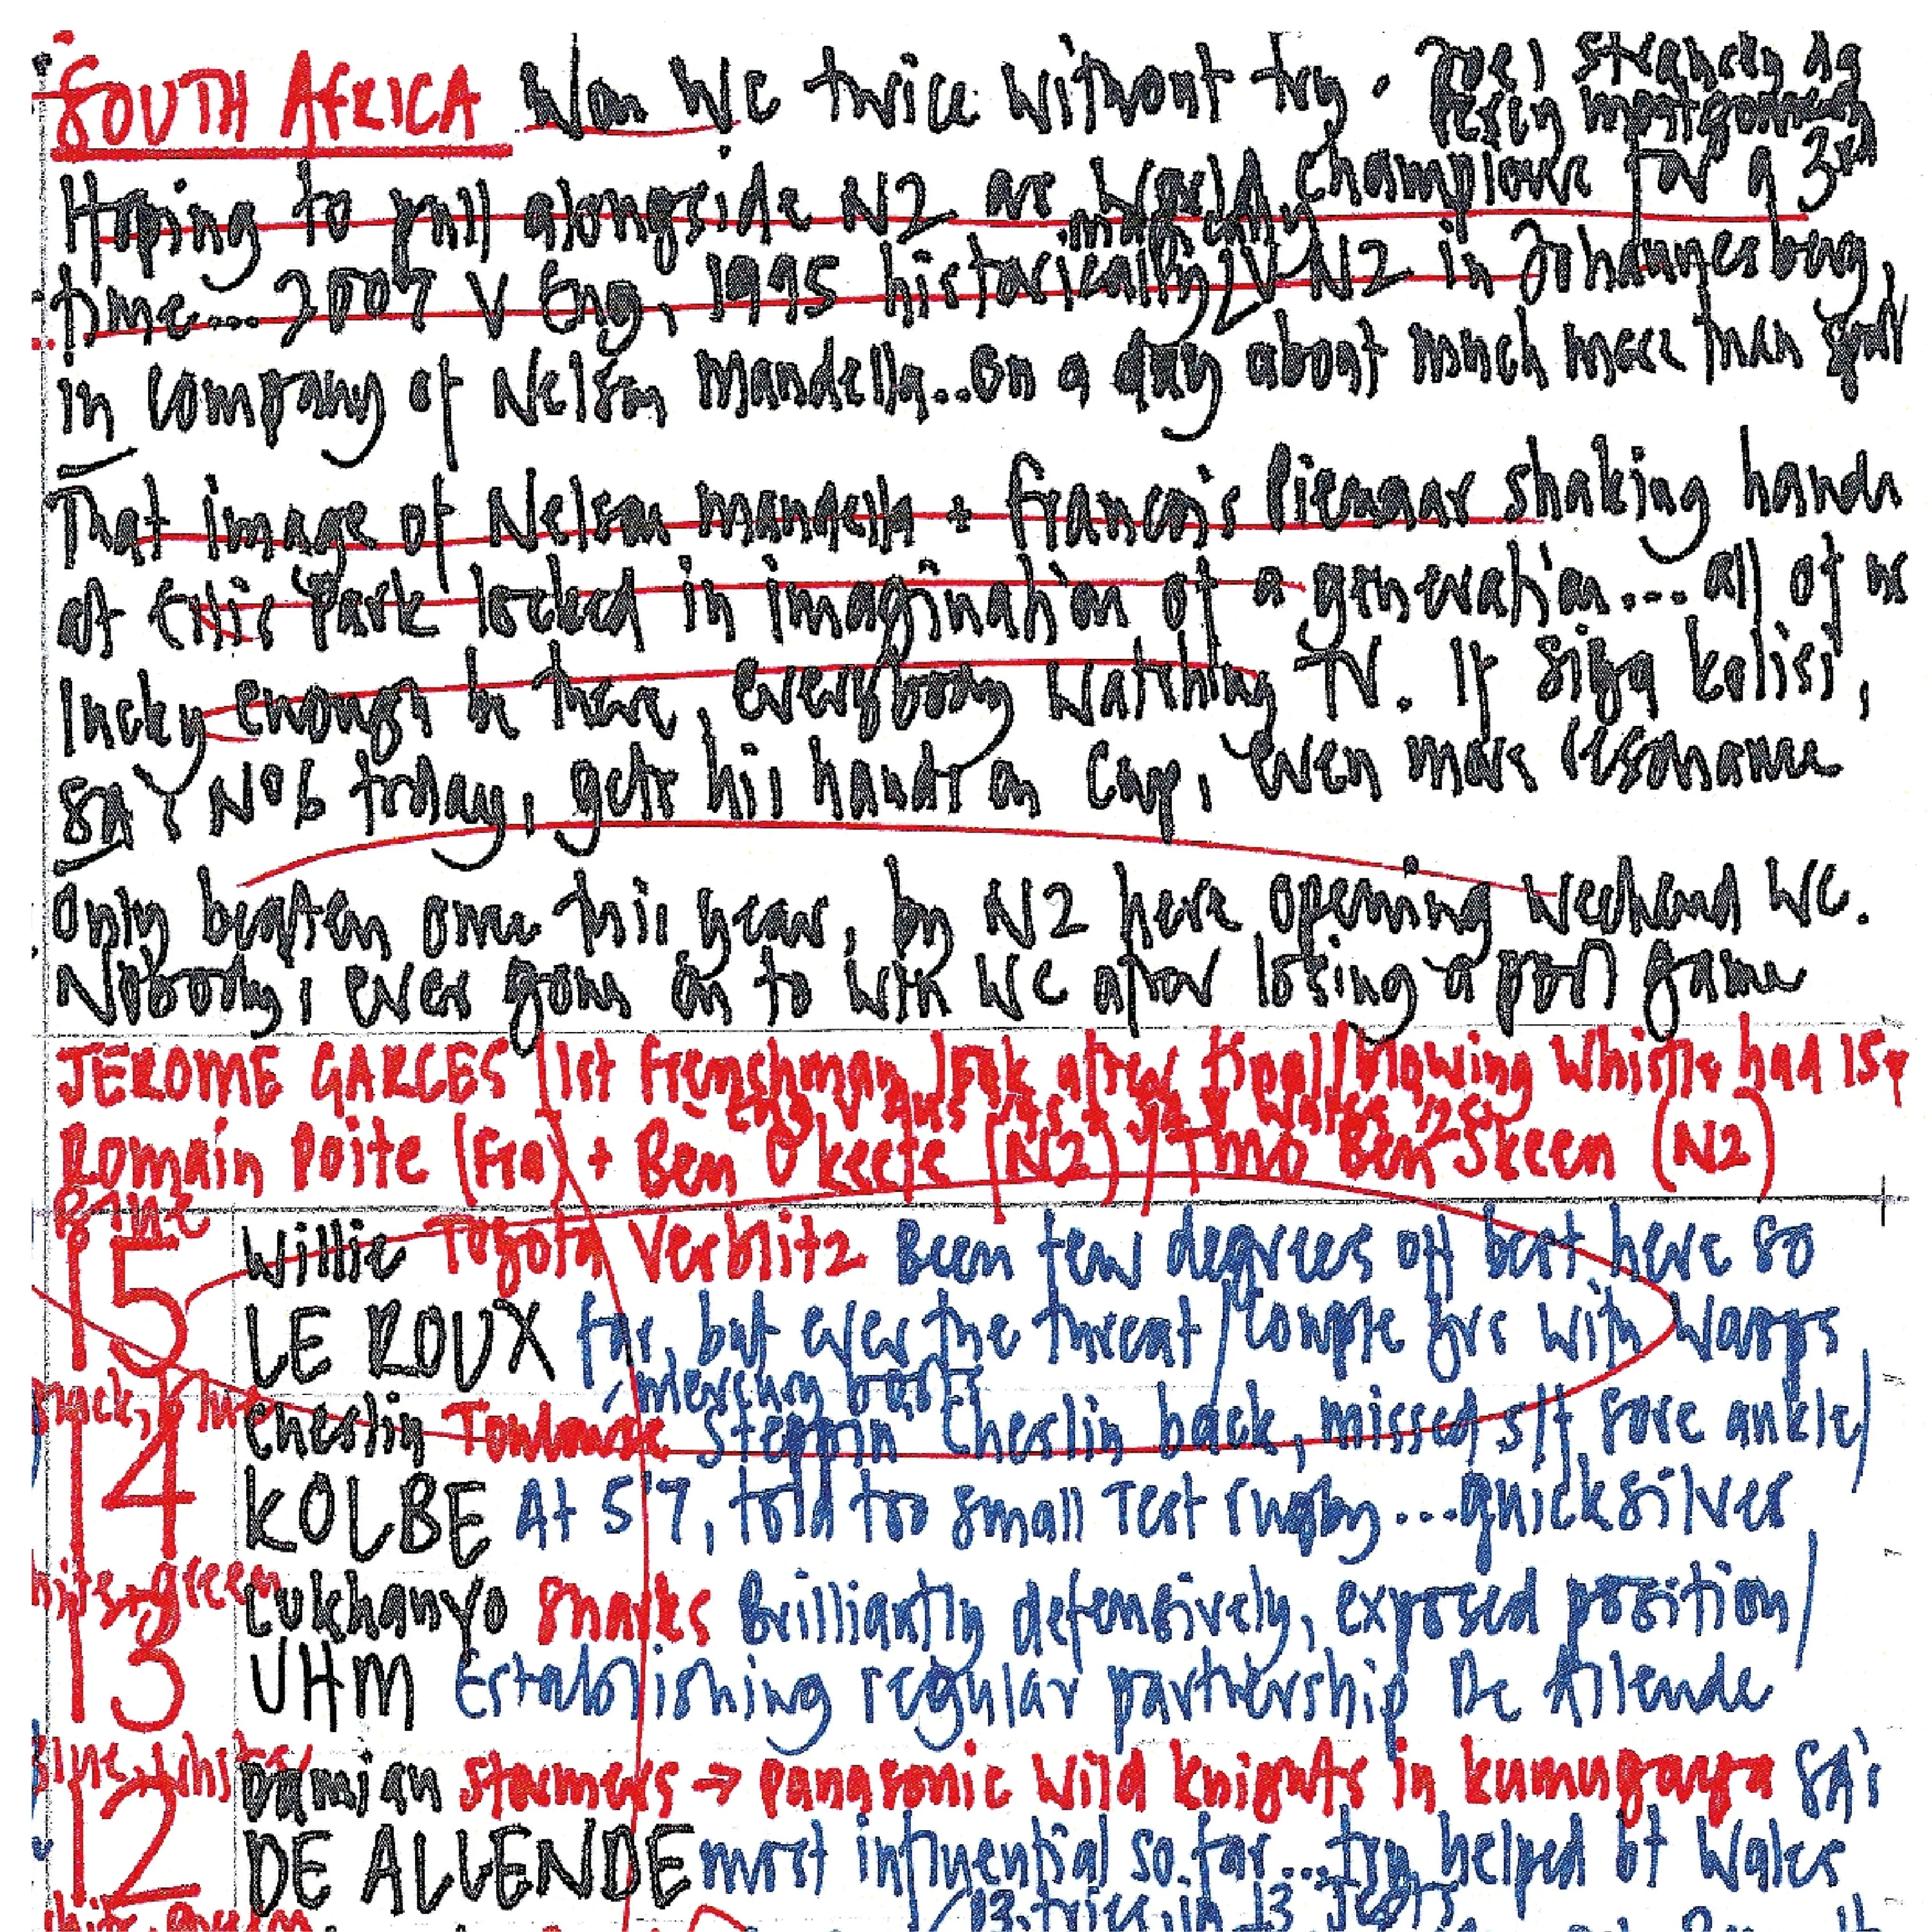 SOUTH AFRICA Won WC twice without try. Joel Stransky
Percy Montgomery
Hoping to pull alongside NZ as World Champions for a 3rd
magically
time... 2007 V Eng, 1995 historically V NZ in Johannesburg,
in company of Nelson Mandella.. on a day about much more than
That image of Nelson Mandella + Francois Pienaar shaking hands
at Ellis Park locked in imagination of a generation... all of us
lucky enough be there, everybody watching TV. If Siya Kolisi,
SA's No6 today, gets his hands on Cup, even more resonance
Only beaten once this year, by NZ here opening weekend WC.
Nobody's ever gone on to win WC after losing a pool game
JEROME GARCES (1st Frenchman ref after final/blowing whistle had 15
Eng v Aus SA v Wales
Romain Poite (Fra) + Ben O'Keefe (NZ) / TMO Ben Skeen (NZ)
15 Willie Toyota Verblitz Been few degrees off best here so
LE ROUX far, but ever the threat/couple yrs with Wasps
mercury boots
14 Cheslin Toulouse Steppin Cheslin back, missed s/f sore ankle/
KOLBE At 5'7, told too small Test rugby... quicksilver
13 Lukhanyo Sharks Brilliantly defensively, exposed position/
UHM Establishing regular partnership De Allende
12 Damian Stormers → Panasonic Wild Knights in Kumugaya SA's
DE ALLENDE most influential so far... try helped bt Wales
13 tries in 13 Tests